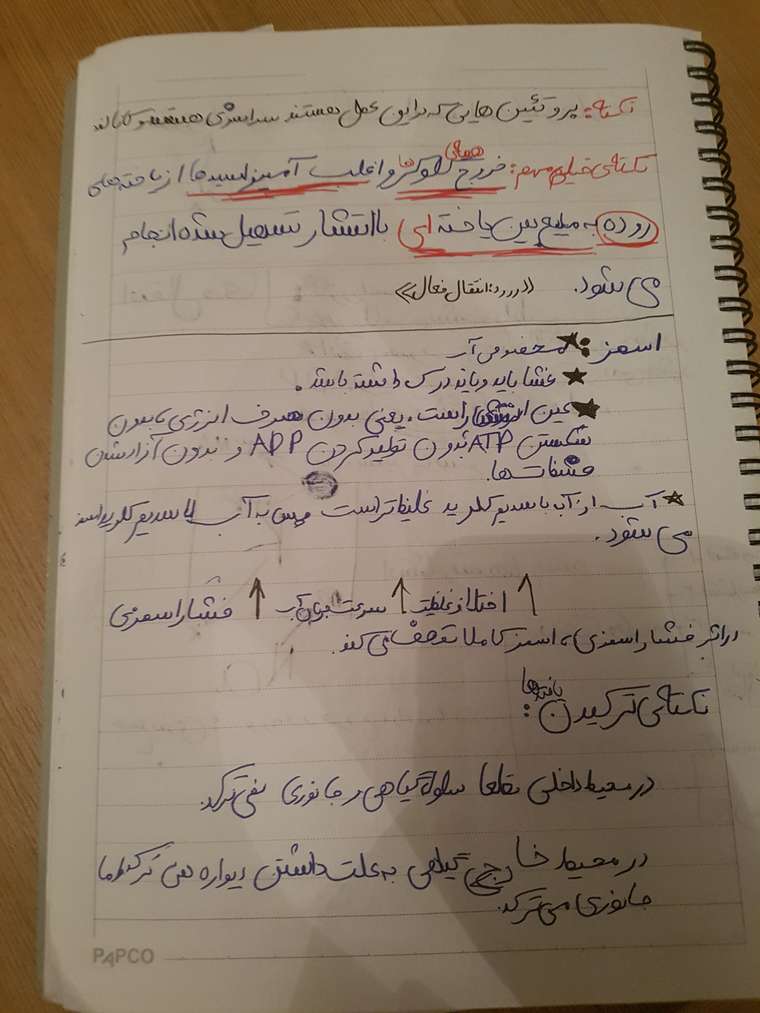 نکته: پروتئین هایی که در این عمل هستند سراسری هستند و کانال
نکته‌ی خیلی مهم: خروج همه‌ی گلوکزها و اغلب آمینواسیدها از یاخته های
روده به مایع بین یاخته ای با انتشار تسهیل شده انجام
می شود. ((ورود: انتقال فعال))
اسمز: مخصوص آب
فشار باید و باید درک داشته باشد.
عین انتشار است. یعنی بدون صرف انرژی یا بدون
شکستن ATP بدون تولید کردن ADP و بدون آزاد شدن
فسفات ها.
آب از آب با سدیم کلرید غلیظ تر است پس به آب با سدیم کلرید اسمز
می شود.
↑ اختلاف غلظت ↑ سرعت جریان آب ↑ فشار اسمزی
در اثر فشار اسمزی، اسمز کاملا توقف می کند.
نکته ی ترکیدن یاخته ها:
در محیط داخلی قطعا سلول گیاهی و جانوری نمی ترکد.
در محیط خارجی گیاهی به علت داشتن دیواره نمی ترکد اما
جانوری می ترکد.
PAPCO